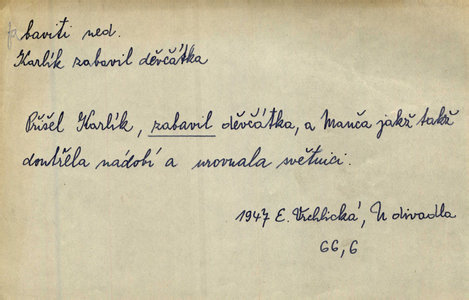 zabaviti ned.
Karlík zabavil děvčátka
Přišel Karlík, zabavil děvčátka, a Manča jakž takž
doutřela nádobí a urovnala světnici.
1947 E. Vrchlická, U divadla
66, 6